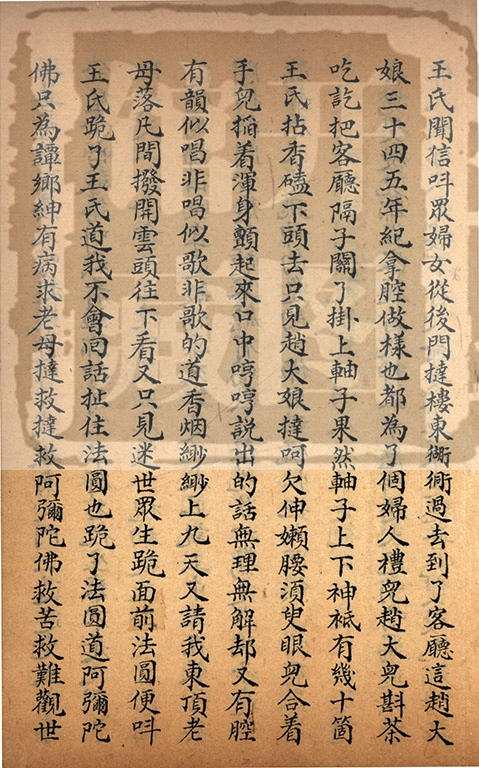 王氏聞信呌眾婦女從後門撻樓東衚衕過去到了客廳這趙大
娘三十四五年紀拿腔做樣也都為了個婦人禮兒趙大兒斟茶
吃訖把客廳隔子關了掛上軸子果然軸子上下神祇有幾十箇
王氏拈香磕下頭去只見趙大娘撻呵欠伸嬾腰湏臾眼兒合着
手兒搯着渾身顫起來口中哼哼說出的話無理無解却又有腔
有韻似唱非唱似歌非歌的道香烟緲緲上九天又請我東頂老
母落凡間撥開雲頭往下看又只見迷世眾生跪面前法圓便呌
王氏跪了王氏道我不會囘話扯住法圓也跪了法圓道阿彌陀
佛只為譚鄉紳有病求老母撻救撻救阿彌陀佛救苦救難觀世